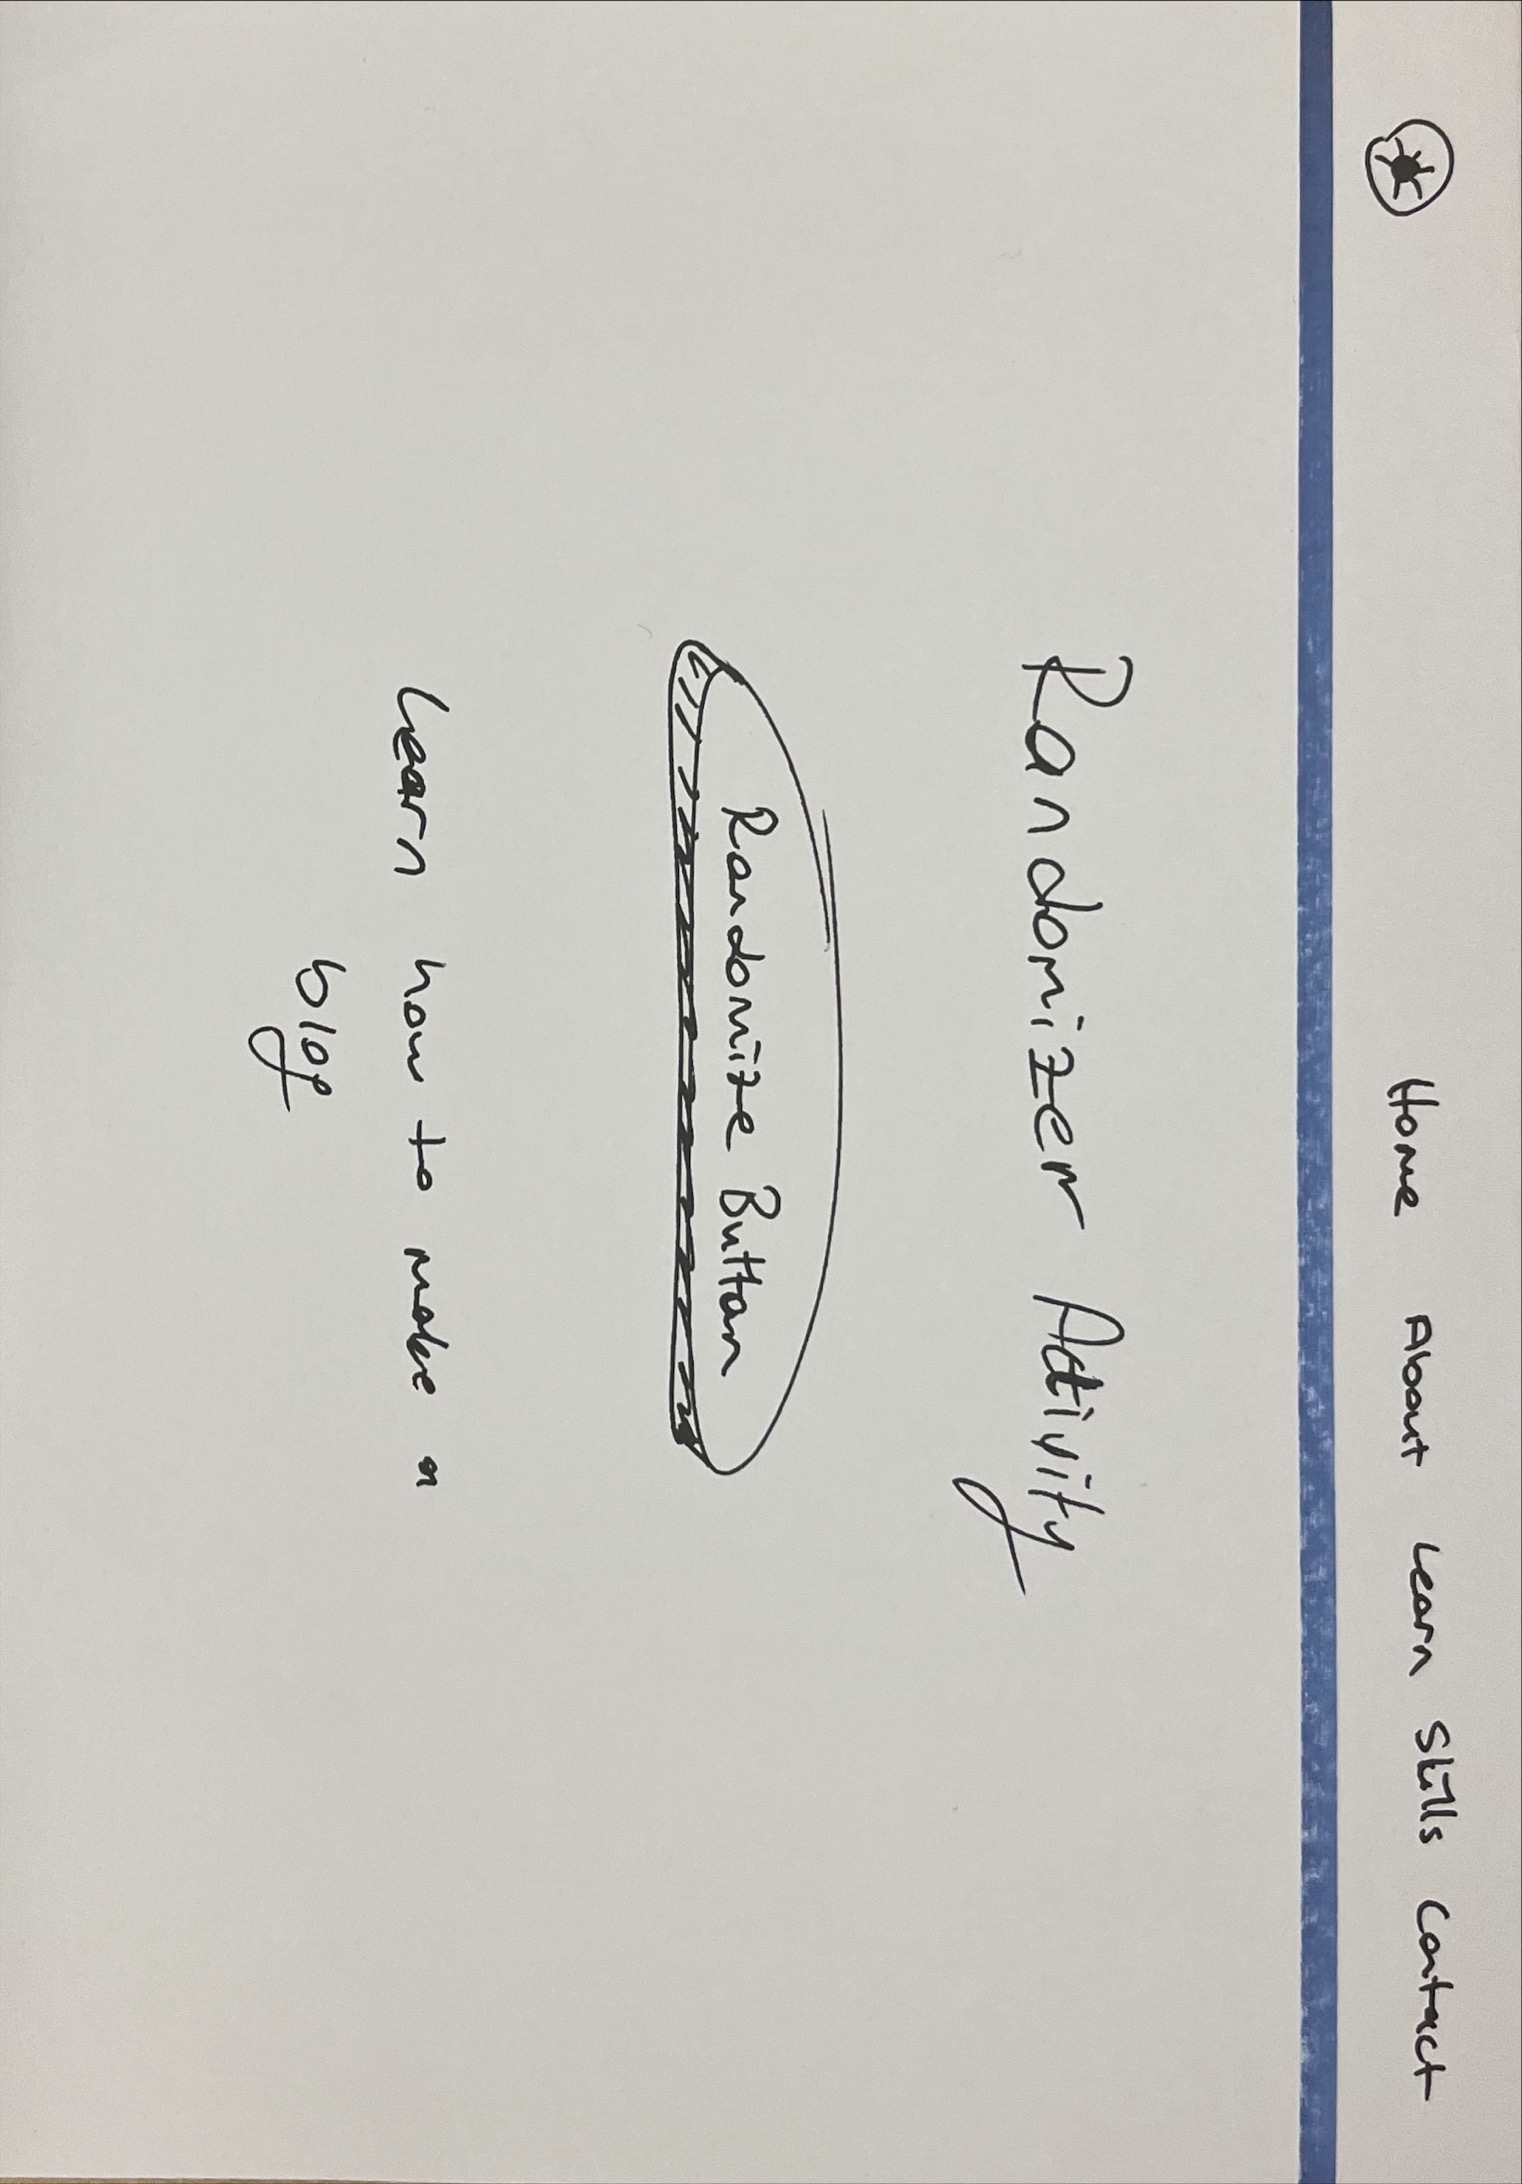 Home About Learn Skills Contact
Randomizer Activity
Randomize Button
Learn how to make a
blog